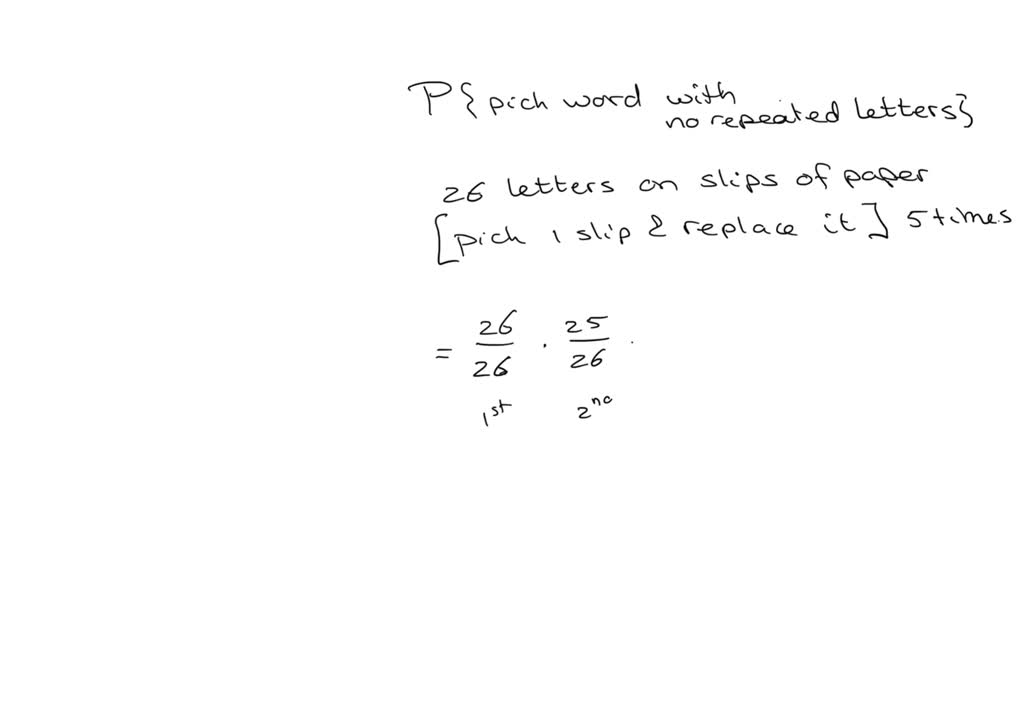 P{pich word with
no repeated letters}
26 letters on slips of paper
[pich 1 slip & replace it] 5 times
= 26/26 . 25/26 .
1st 2nd